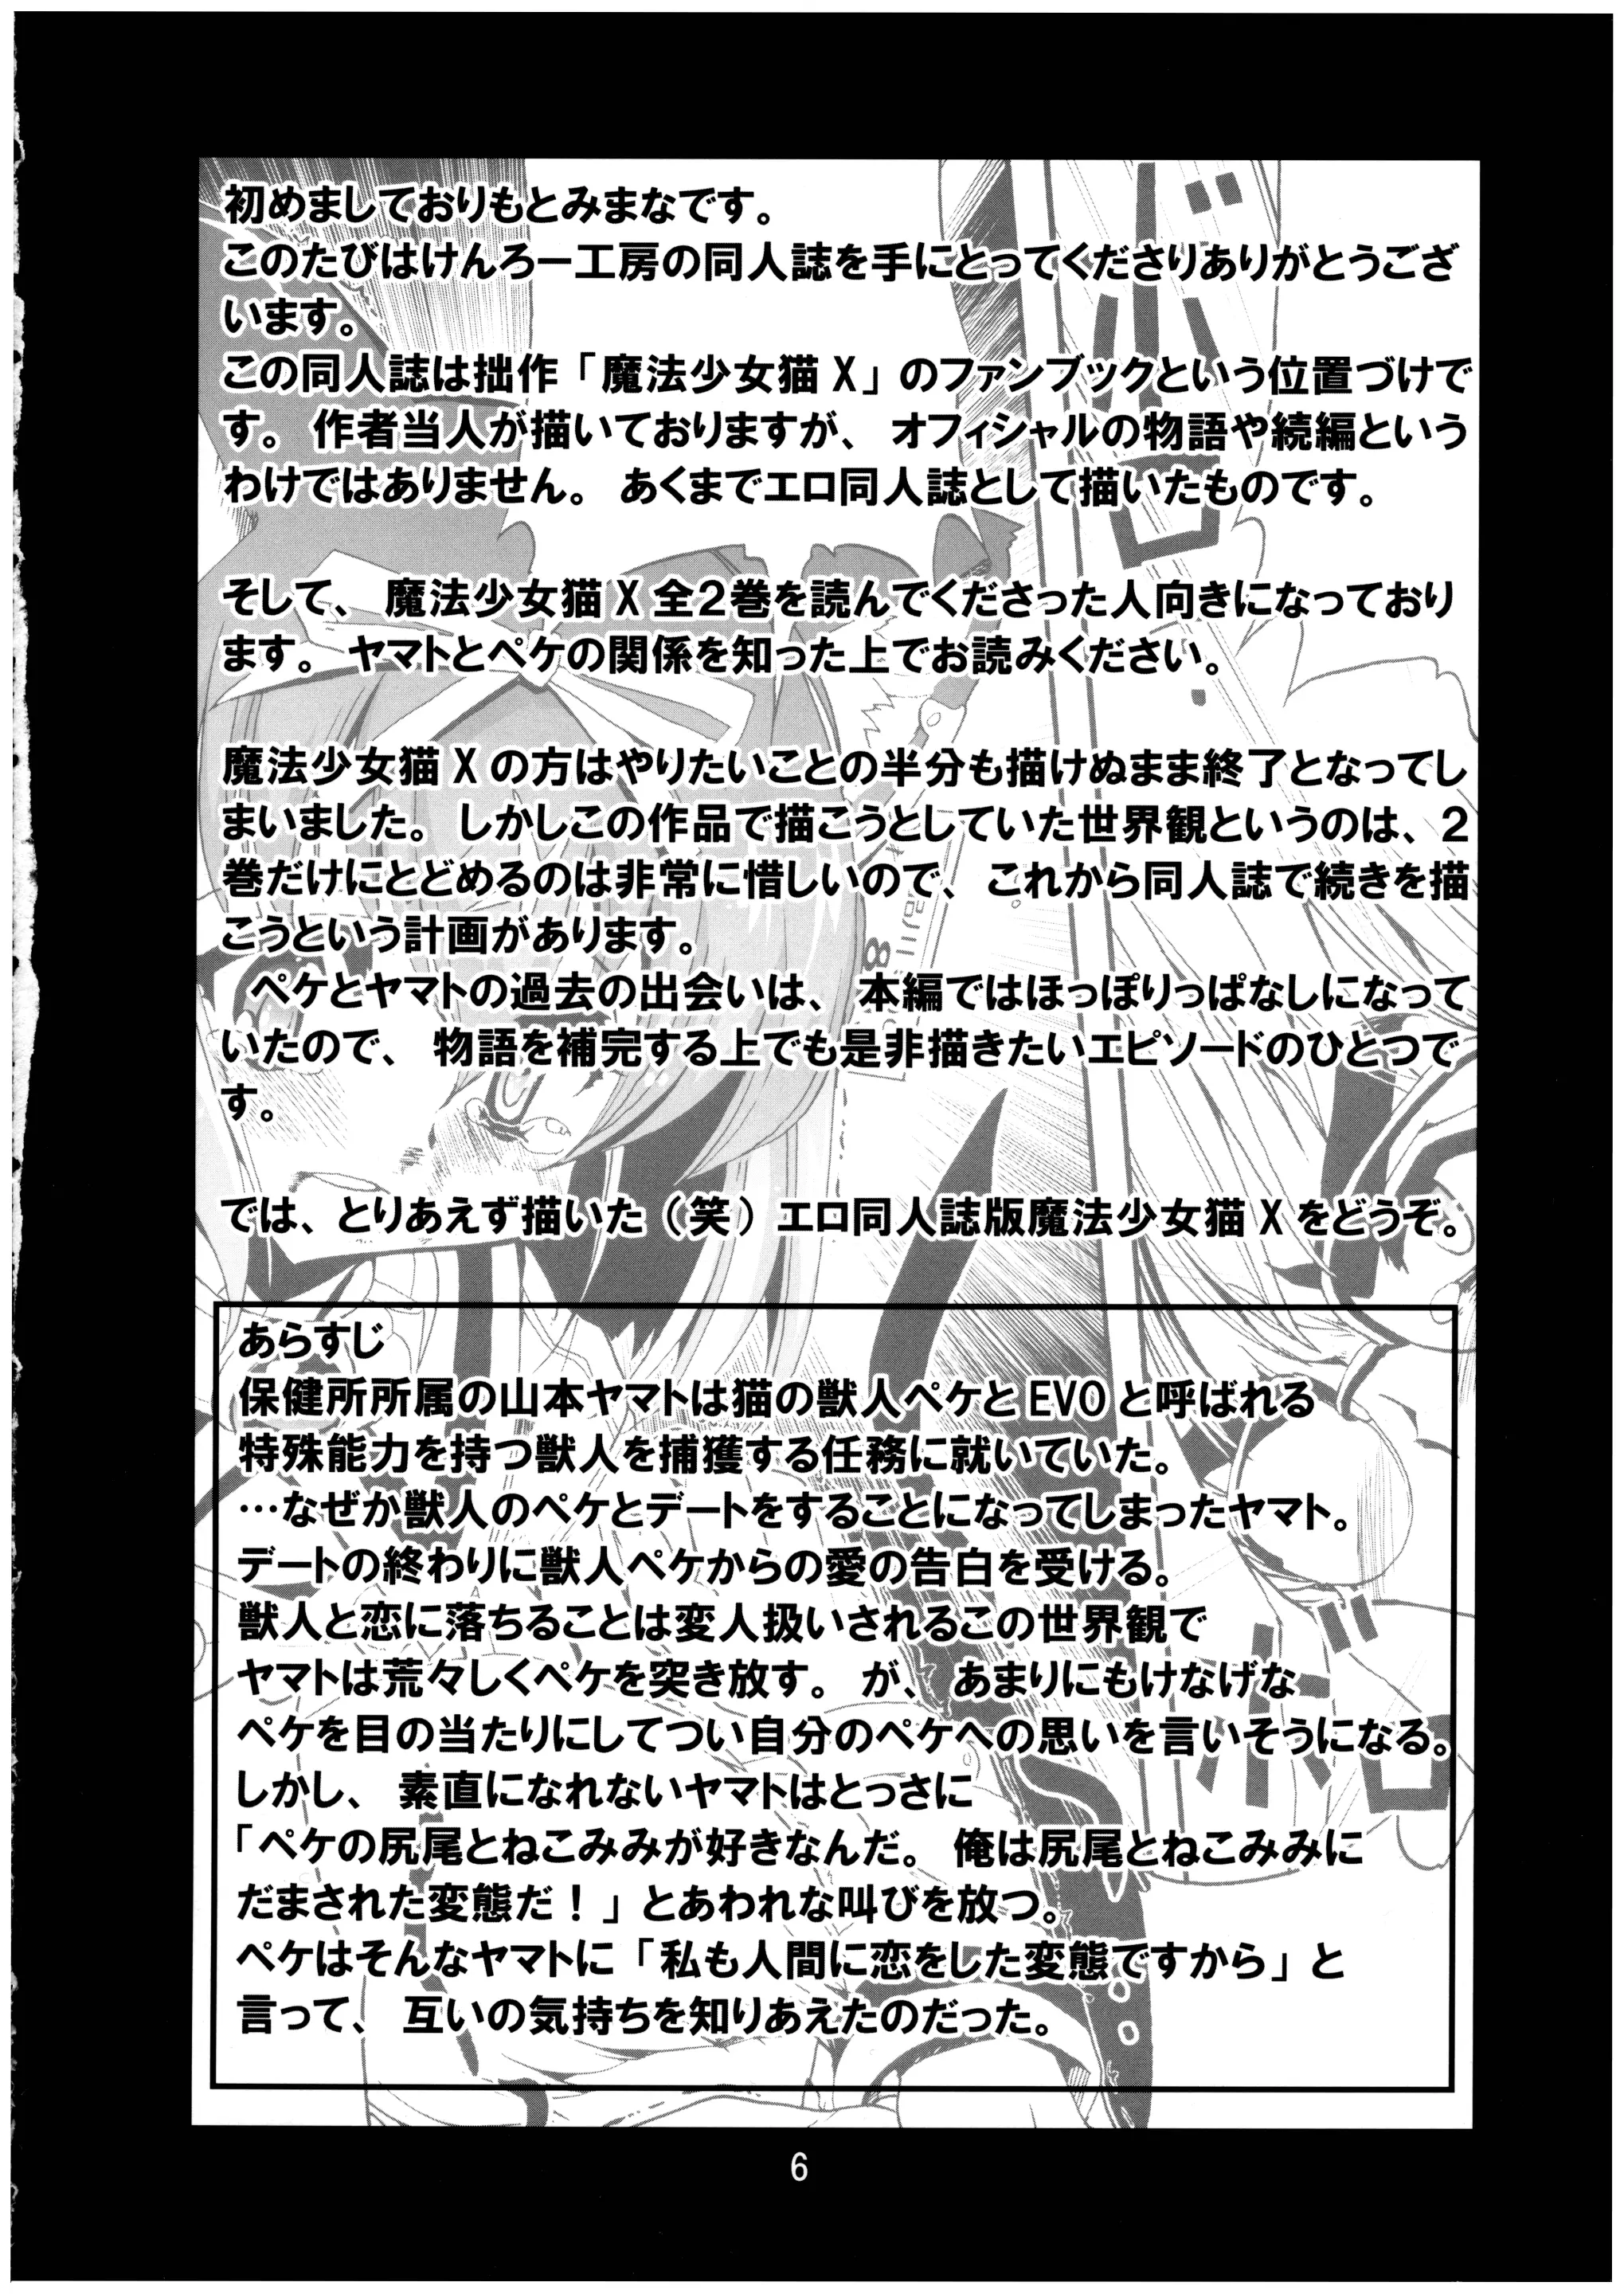 初めましておりもとみまなです。
このたびはけんろー工房の同人誌を手にとってくださりありがとうござ
います。
この同人誌は拙作「魔法少女猫X」のファンブックという位置づけで
す。作者当人が描いておりますが、オフィシャルの物語や続編という
わけではありません。あくまでエロ同人誌として描いたものです。
そして、魔法少女猫X全2巻を読んでくださった人向きになっており
ます。ヤマトとペケの関係を知った上でお読みください。
魔法少女猫Xの方はやりたいことの半分も描けぬまま終了となってし
まいました。しかしこの作品で描こうとしていた世界観というのは、2
巻だけにとどめるのは非常に惜しいので、これから同人誌で続きを描
こうという計画があります。
ペケとヤマトの過去の出会いは、本編ではほっぽりっぱなしになって
いたので、物語を補完する上でも是非描きたいエピソードのひとつで
す。
では、とりあえず描いた（笑）エロ同人誌版魔法少女猫Xをどうぞ。
あらすじ
保健所所属の山本ヤマトは猫の獣人ペケとEVOと呼ばれる
特殊能力を持つ獣人を捕獲する任務に就いていた。
…なぜか獣人のペケとデートをすることになってしまったヤマト。
デートの終わりに獣人ペケからの愛の告白を受ける。
獣人と恋に落ちることは変人扱いされるこの世界観で
ヤマトは荒々しくペケを突き放す。が、あまりにもけなげな
ペケを目の当たりにしてつい自分のペケへの思いを言いそうになる。
しかし、素直になれないヤマトはとっさに
「ペケの尻尾とねこみみが好きなんだ。俺は尻尾とねこみみに
だまされた変態だ！」とあわれな叫びを放つ。
ペケはそんなヤマトに「私も人間に恋をした変態ですから」と
言って、互いの気持ちを知りあえたのだった。
6